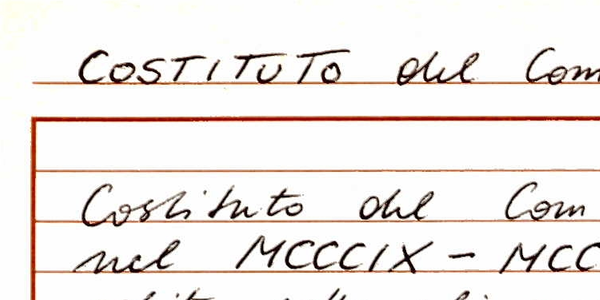 COSTITUTO del Com
Costituto del Com
nel MCCCIX - MCC